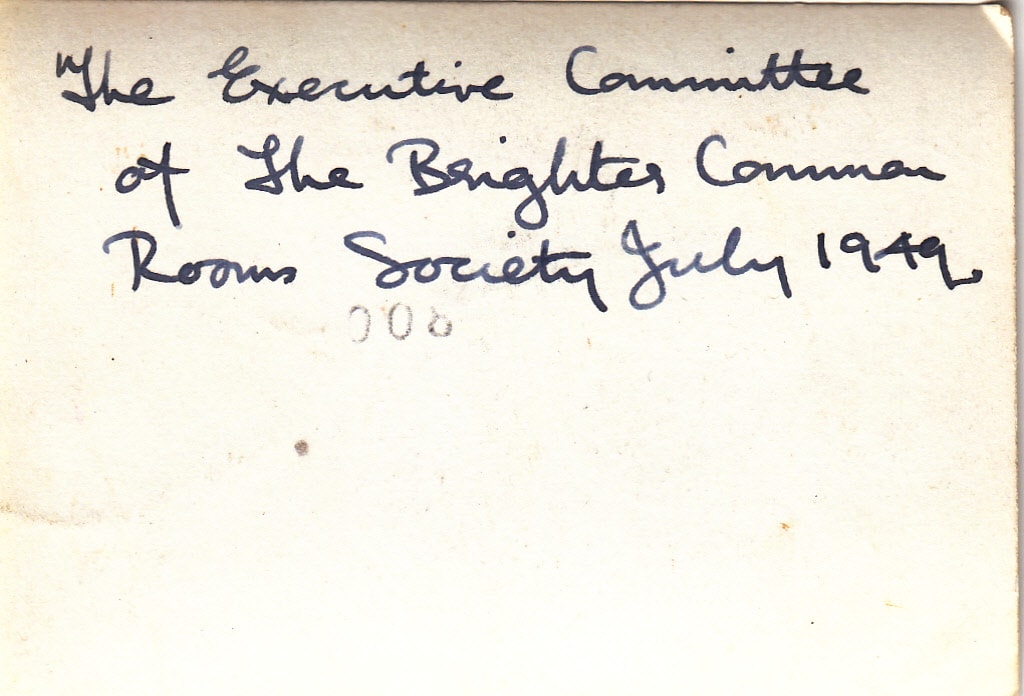 "The Executive Committee
of The Brighter Common
Rooms Society July 1949.